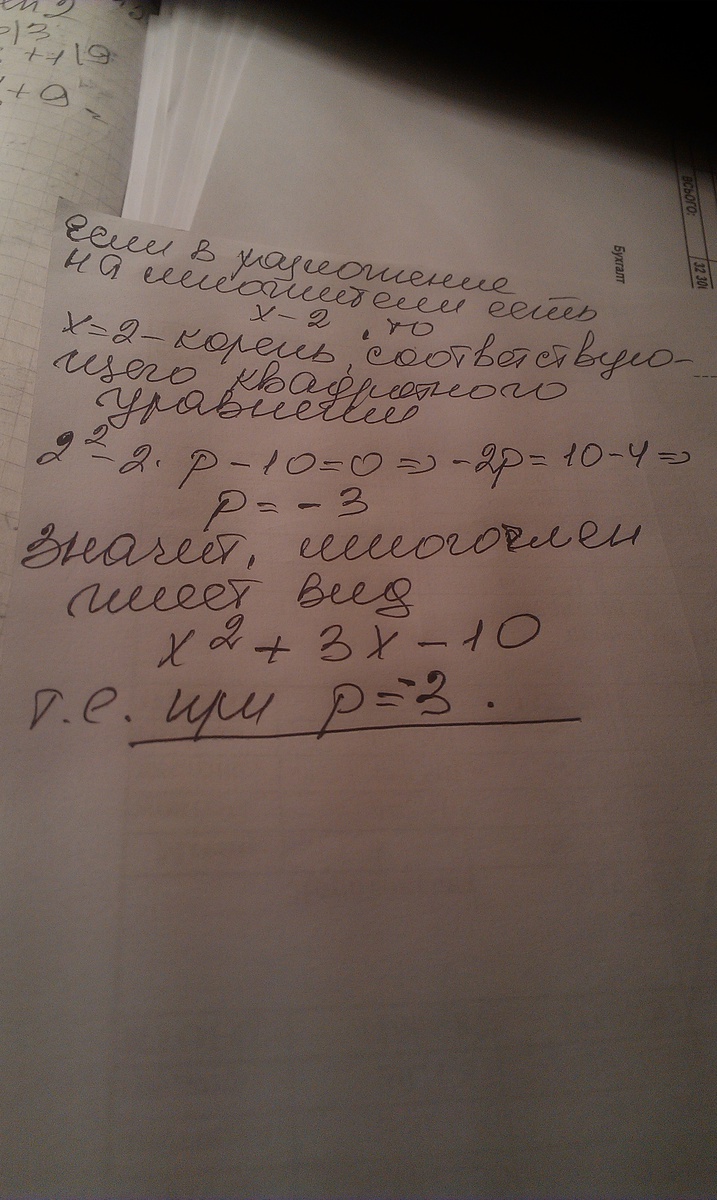 + 9
ВСЬОГО:
Бухгалт
если в разложение
на множители есть
x-2, то
x=2 - корень, соответствую-
щего квадратного
уравнения
2² - 2 · p - 10 = 0 => -2p = 10 - 4 =>
p = - 3
Значит, многочлен
имеет вид
x² + 3x - 10
т.е. при p = -3.